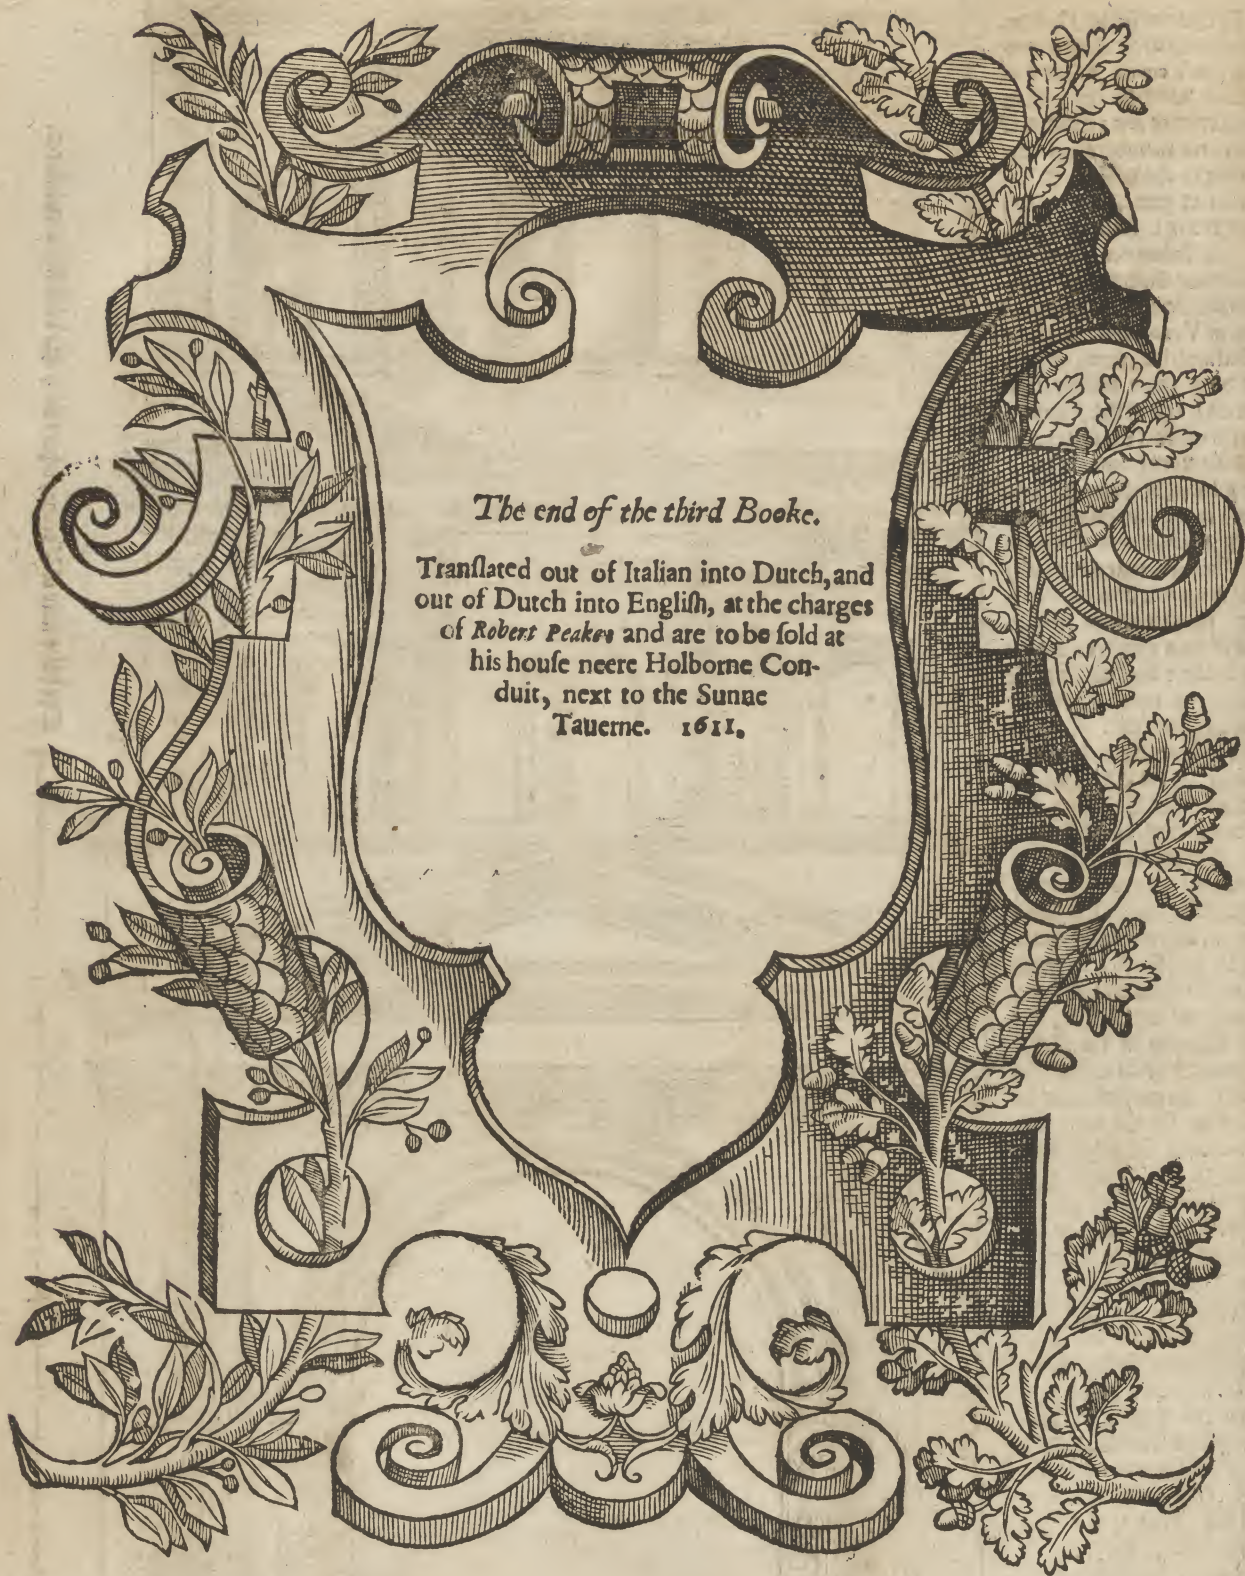 The end of the third Booke.
Tranſlated out of Italian into Dutch, and
out of Dutch into Engliſh, at the charges
of Robert Peake, and are to be ſold at
his houſe neere Holborne Con-
duit, next to the Sunne
Tauerne. 1611.